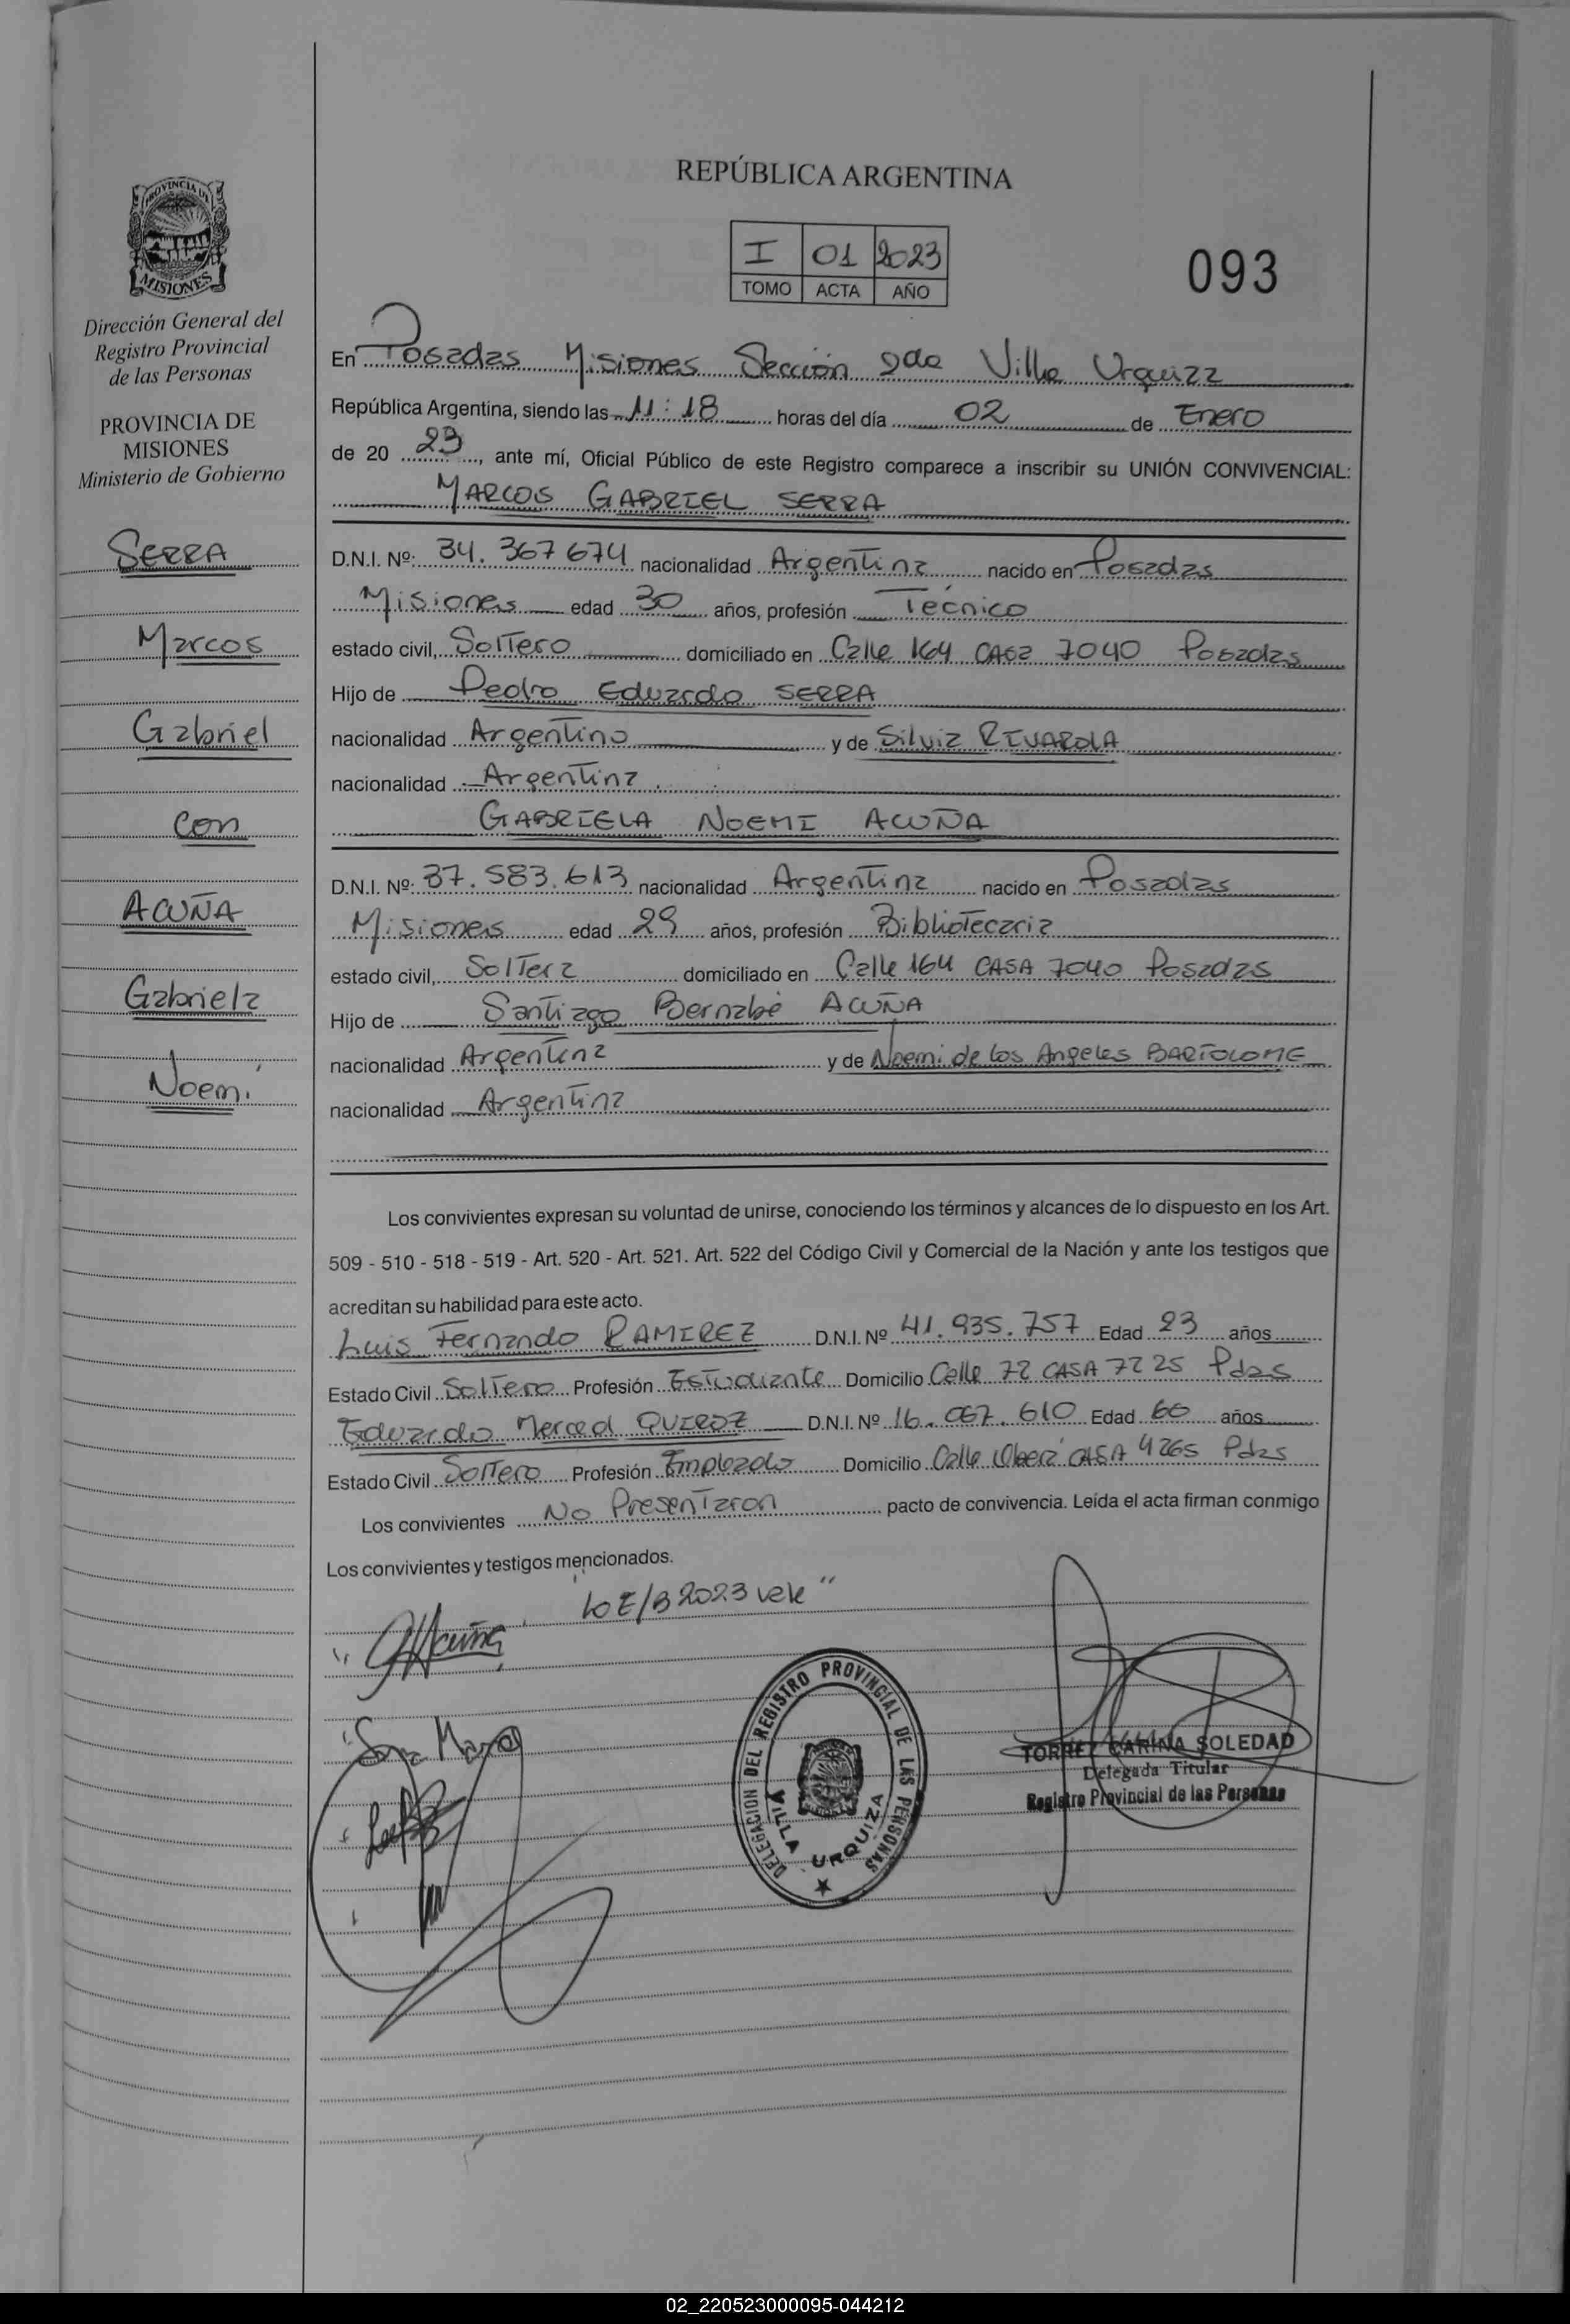 REPÚBLICA ARGENTINA
I 01 2023
TOMO ACTA AÑO
093
PROVINCIA DE
MISIONES
Dirección General del
Registro Provincial
de las Personas
PROVINCIA DE
MISIONES
Ministerio de Gobierno
SERRA
Marcos
Gabriel
con
ACUÑA
Gabriela
Noemí
En Posadas Misiones Sección 2da Villa Urquiza
República Argentina, siendo las 11:18 horas del día 02 de Enero
de 20 23, ante mí, Oficial Público de este Registro comparece a inscribir su UNIÓN CONVIVENCIAL:
MARCOS GABRIEL SERRA
D.N.I. Nº: 34.367674 nacionalidad Argentina nacido en Posadas
Misiones edad 30 años, profesión Técnico
estado civil, Soltero domiciliado en Calle 164 CASA 7040 Posadas
Hijo de Pedro Eduardo SERRA
nacionalidad Argentino y de Silvia RIVAROLA
nacionalidad Argentina
GABRIELA NOEMI ACUÑA
D.N.I. Nº: 37.583.613 nacionalidad Argentina nacido en Posadas
Misiones edad 29 años, profesión Bibliotecaria
estado civil, Soltera domiciliado en Calle 164 CASA 7040 Posadas
Hijo de Santiago Bernabé ACUÑA
nacionalidad Argentina y de Noemi de los Angeles BARTOLOME
nacionalidad Argentina
Los convivientes expresan su voluntad de unirse, conociendo los términos y alcances de lo dispuesto en los Art.
509 - 510 - 518 - 519 - Art. 520 - Art. 521. Art. 522 del Código Civil y Comercial de la Nación y ante los testigos que
acreditan su habilidad para este acto.
Luis Fernando RAMIREZ D.N.I. Nº 41.935.757 Edad 23 años
Estado Civil Soltero Profesión Estudiante Domicilio Calle 72 CASA 7225 Pdas
Eduardo Merced QUIROZ D.N.I. Nº 16.067.610 Edad 60 años
Estado Civil Soltero Profesión Empleado Domicilio Calle Oberá CASA 4265 Pdas
Los convivientes No Presentaron pacto de convivencia. Leída el acta firman conmigo
Los convivientes y testigos mencionados.
2023 vale"
Acuña
DELEGACION DEL REGISTRO PROVINCIAL DE LAS PERSONAS
VILLA URQUIZA
TORREZ CARINA SOLEDAD
Delegada Titular
Registro Provincial de las Personas
02_220523000095-044212